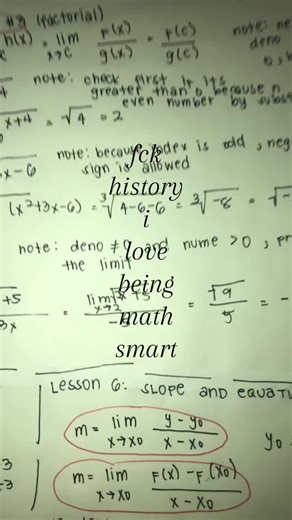 #3 (factorial)
h(x) = lim x→c F(x)/g(x) = F(c)/g(c)
note: ne
deno
note: check first if its
greater than 0 because n
even number by subst
√x+4 = √4 = 2
note: because index is odd, neg
sign is allowed
∛(x²+3x-6) = ∛4-6-6 = ∛-8 = √-
note: deno ≠ 0 and nume > 0, pr
the limit
fck
history
i
love
being
math
smart
Lesson 6: SLOPE AND EQUATI
m = lim x→x0 y-y0/x-x0
y0
m = lim x→x0 F(x)-F(x0)/x-x0